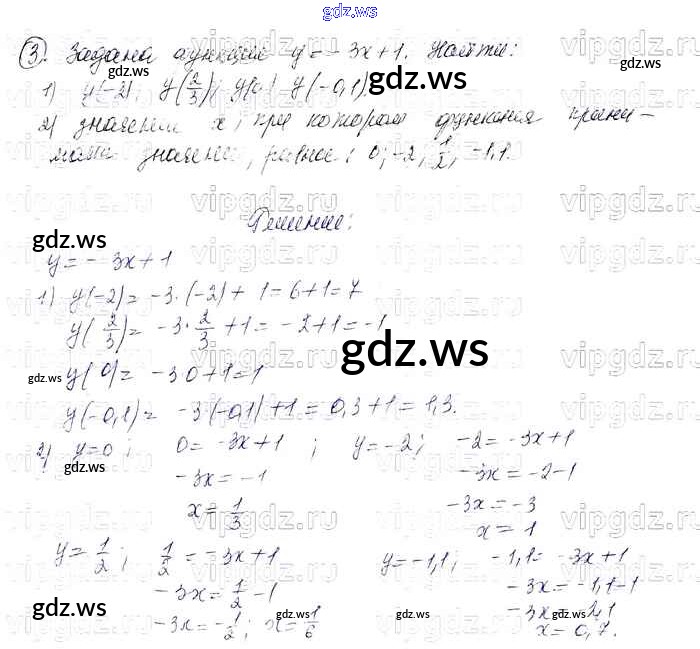 gdz.ws
③. Задана функция y = -3x+1. Найти:
1) y(-2); y(2/3); y(0); y(-0,1)
2) значение x, при котором функция прини-
мает значение, равное: 0; -2; 1/2; -1,1.
Решение:
y = -3x+1
1) y(-2) = -3·(-2)+1 = 6+1 = 7
y(2/3) = -3·2/3+1 = -2+1 = -1
y(0) = -3·0+1 = 1
y(-0,1) = -3·(-0,1)+1 = 0,3+1 = 1,3.
2) y=0; 0 = -3x+1; y=-2; -2 = -3x+1
-3x = -1 -3x = -2-1
x = 1/3 -3x = -3
x = 1
y = 1/2; 1/2 = -3x+1 y = -1,1; -1,1 = -3x+1
-3x = 1/2 - 1 -3x = -1,1-1
-3x = -1/2; x = 1/6 -3x = -2,1
x = 0,7.
gdz.ws
gdz.ws
gdz.ws
gdz.ws
gdz.ws
gdz.ws
gdz.ws
gdz.ws
gdz.ws
vipgdz.ru